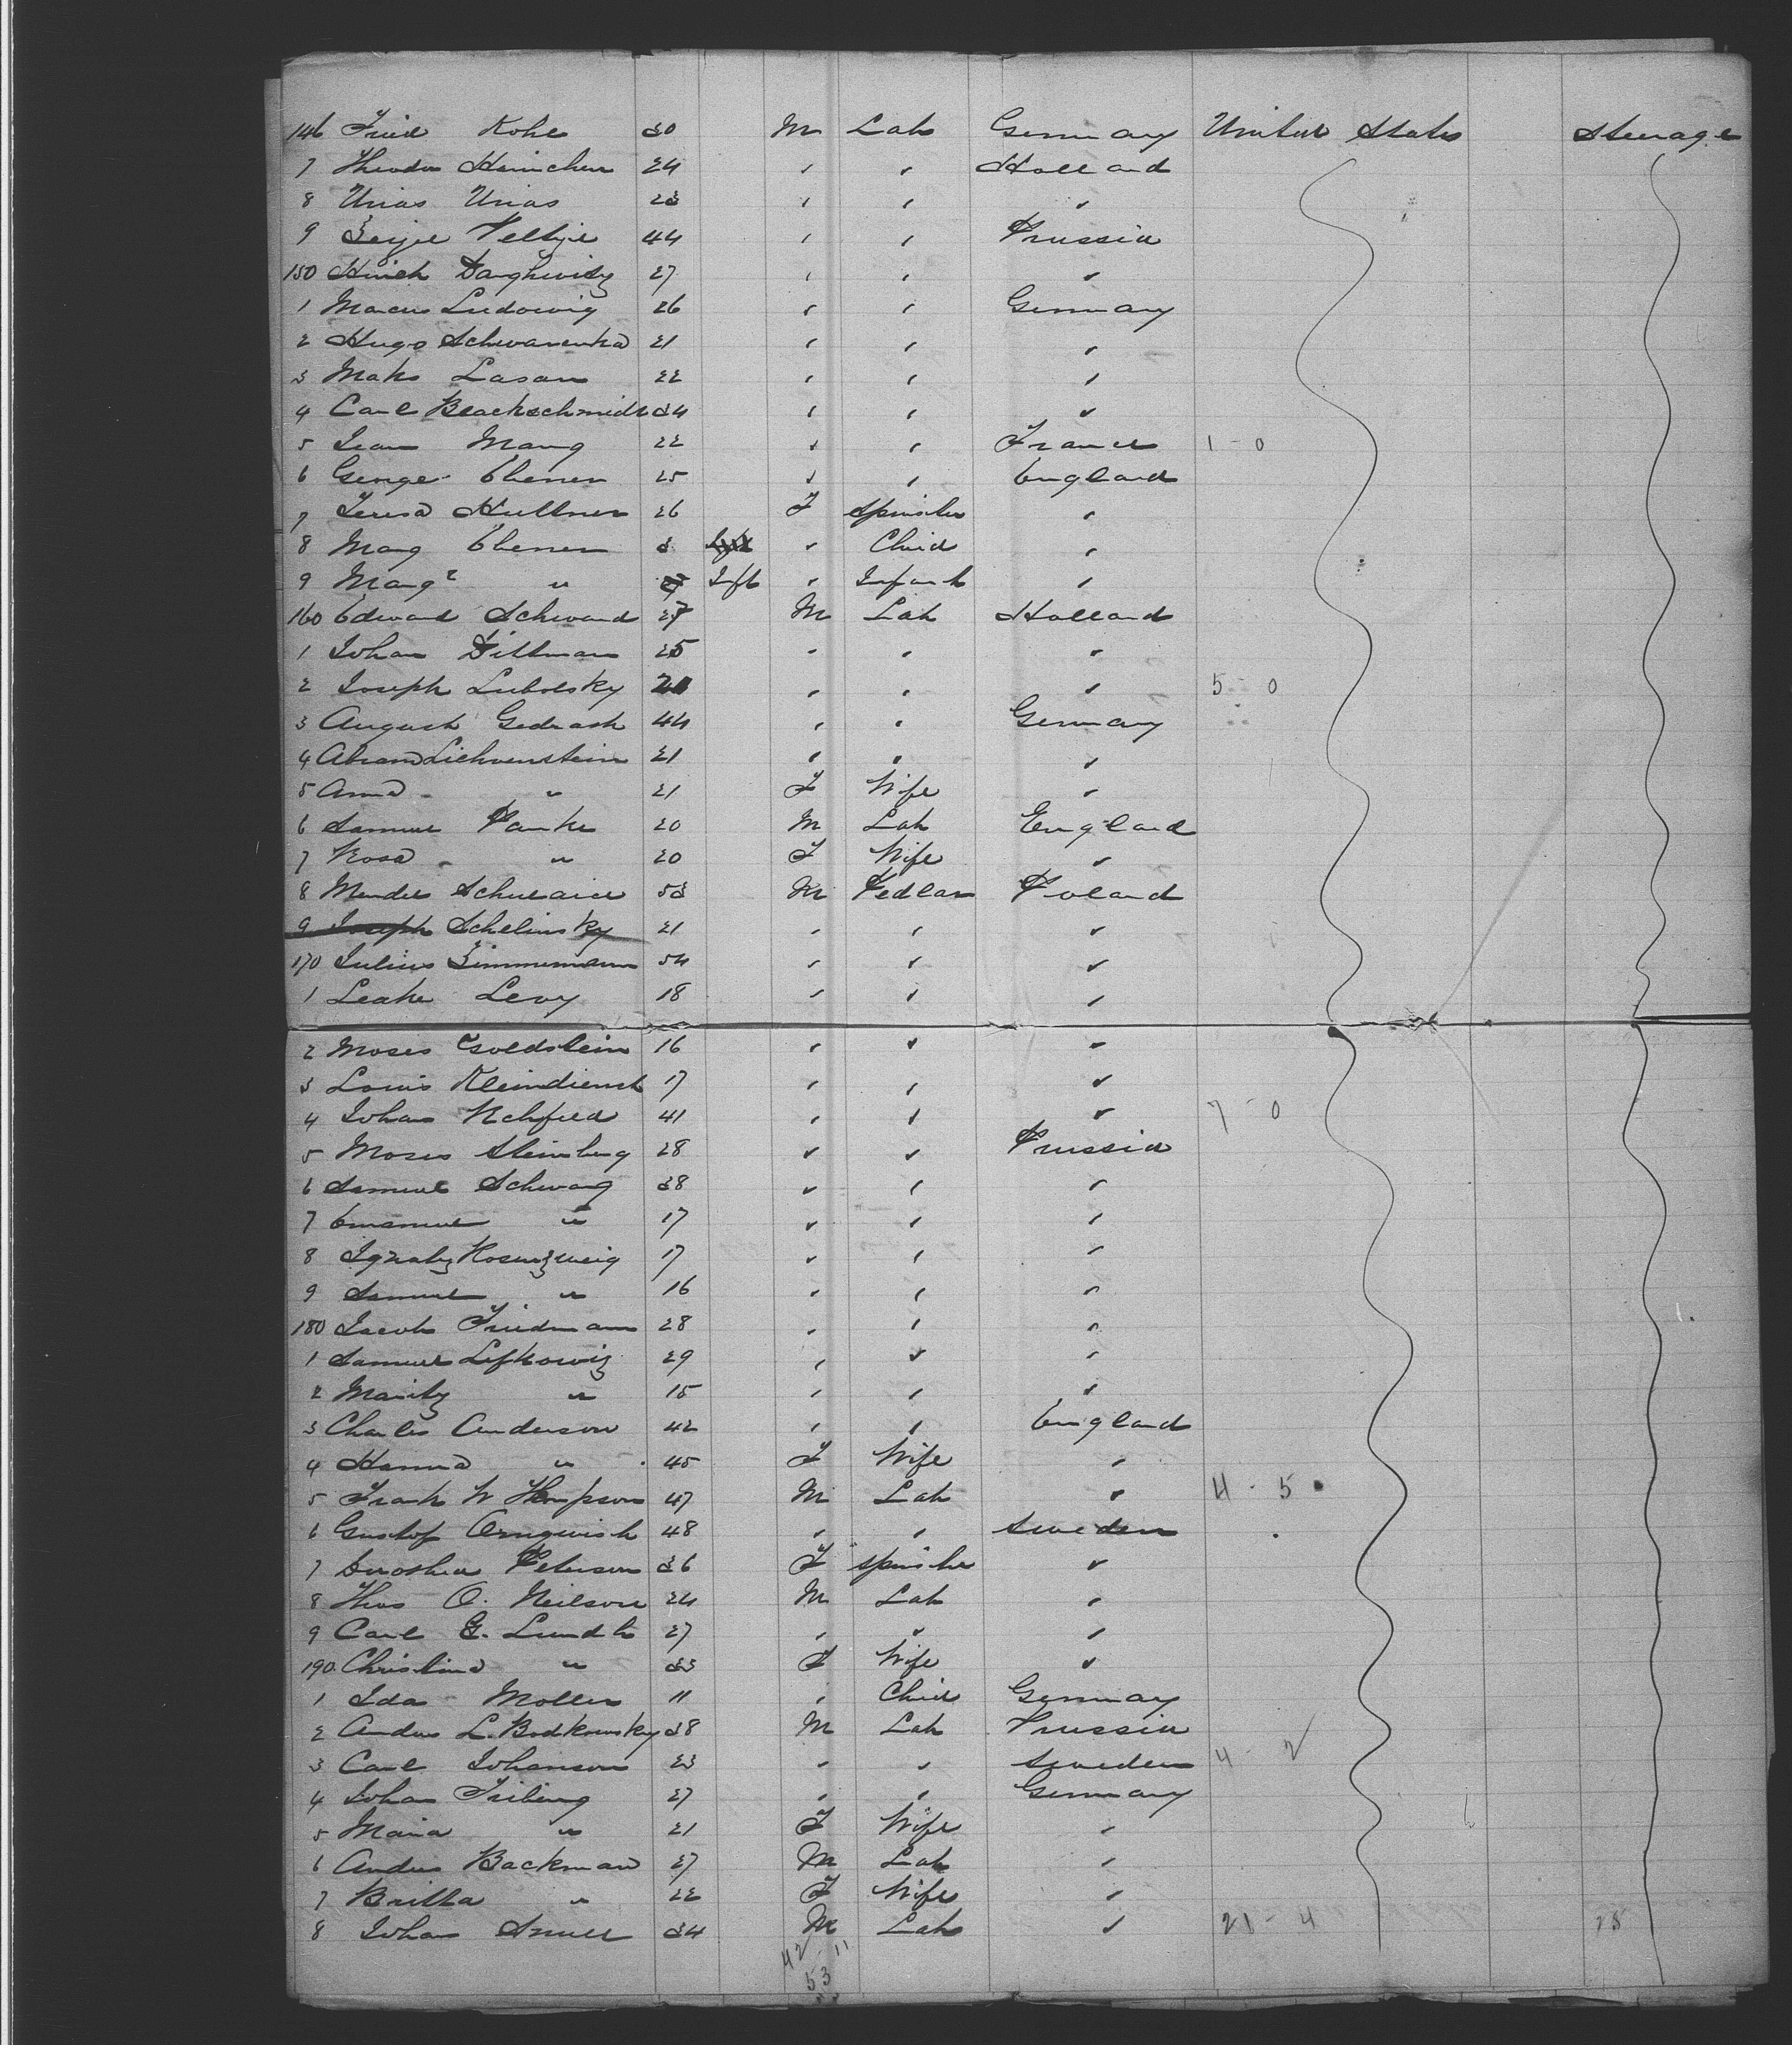 146 Fried Kohl 30 M Lab Germany United States Steerage
7 Theodor Heinichen 24 " " Holland
8 Urias Urias 23 " " "
9 Veltzie 44 " " Prussia
150 Hirsch 27 " " "
1 Marcus Ludowig 26 " " Germany
2 Hugo 21 " " "
3 Maks Lasan 22 " " "
4 Carl Blackschmidt 34 " " "
5 Mang 22 " " France 1 - 0
6 George Ebener 25 " " England
7 Teresa Huttner 26 F Spinster "
8 Marg Ebener 3 " Child "
9 Marg " Inft " Infant "
160 Edward Schwand 27 M Lab Holland
1 Johan Dittman 25 " " "
2 Joseph Lubolsky " " " 5 - 0
3 August Gedrash 44 " " Germany
4 Abram Lichvenstein 21 " " "
5 Anna " 21 F Wife "
6 Samuel Panke 20 M Lab England
7 Rosa " 20 F Wife "
8 Mendel 53 M Pedlar Poland
9 Joseph Schelinsky 21 " " "
170 Julius Zimmermann 54 " " "
1 Leake Levy 18 " " "
2 Moses Goldstein 16 " " "
3 Louis Kleindienst 17 " " "
4 Johan Rehfeld 41 " " " 7 - 0
5 Moses Steinberg 28 " " Prussia
6 Samuel Schwarz 38 " " "
7 Emanuel " 17 " " "
8 Ignatz Rosenzweig 17 " " "
9 Samuel " 16 " " "
180 Jacob Friedmann 28 " " "
1 Samuel Lefkowiz 29 " " "
2 Moritz " 15 " " "
3 Charles Anderson 42 " " England
4 Hanna " 45 F Wife "
5 Frank W Thompson 47 M Lab " 4 - 5
6 Gustof Ornquish 48 " " Sweden
7 Dorothea Peterson 36 F Spinster "
8 Thos O. Neilson 24 M Lab "
9 Carl G. Lundh 27 " " "
190 Christina " 33 F Wife "
1 Ida Moller 11 " Child Germany
2 Andus L. Bodkowsky 38 M Lab Prussia
3 Carl Johanson 23 " " Sweden 4 - 2
4 Johan Friberg 27 " " Germany
5 Maria " 21 F Wife "
6 Andus Backman 27 M Lab "
7 Britta " 22 F Wife "
8 Johan 34 M Lab " 21 - 4
42 - 11
53